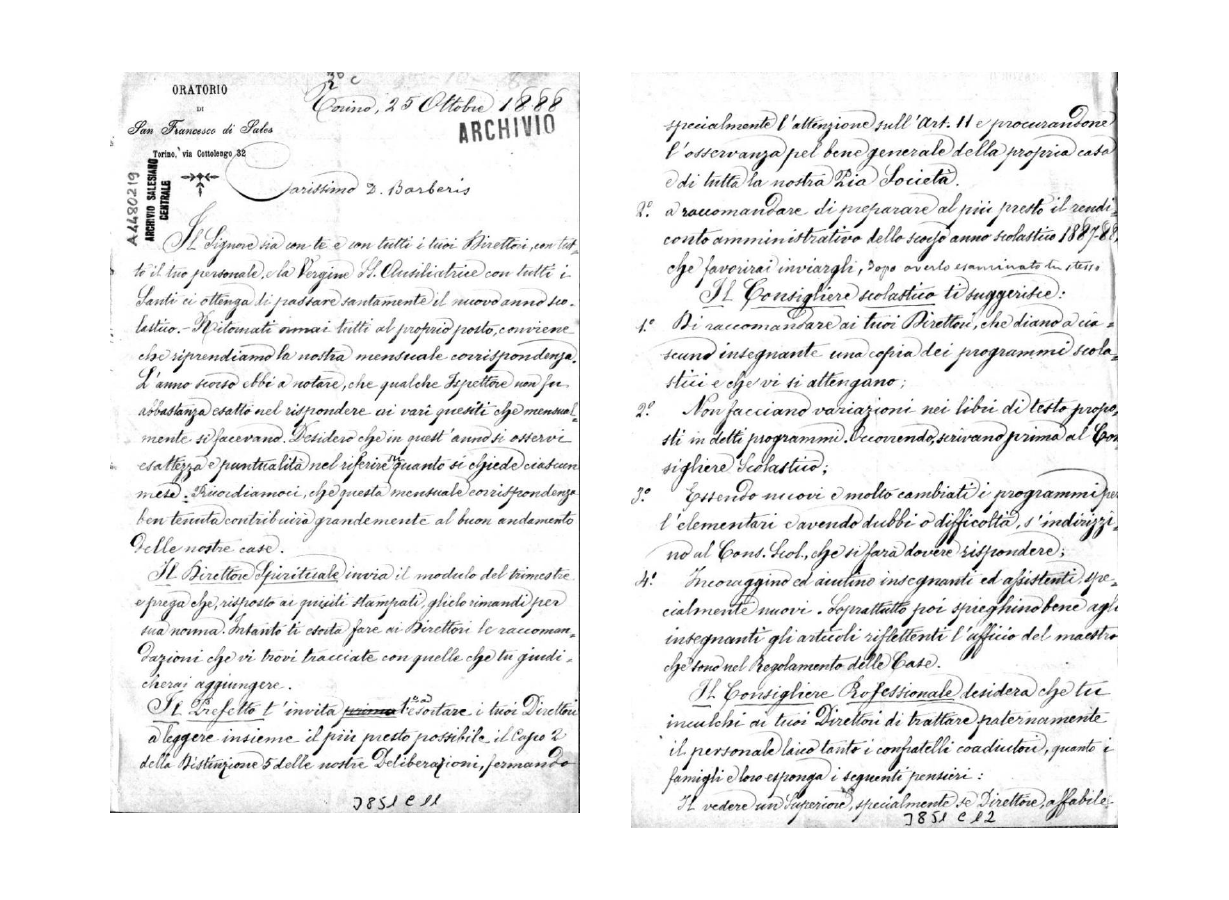 3° c
ORATORIO
DI
San Francesco di Sales
Torino, via Cottolengo 32
Torino, 25 Ottobre 1888
ARCHIVIO
A4480219
ARCHIVIO SALESIANO
CENTRALE
Carissimo D. Barberis
Il Signore sia con te e con tutti i tuoi Direttori, con tut-
to il tuo personale, e la Vergine SS. Ausiliatrice con tutti i
Santi ci ottenga di passare santamente il nuovo anno sco-
lastico. - Ritornati ormai tutti al proprio posto, conviene
che riprendiamo la nostra mensuale corrispondenza.
L'anno scorso ebbi a notare, che qualche Ispettore non fu
abbastanza esatto nel rispondere ai vari quesiti che mensual-
mente si facevano. Desidero che in quest'anno si osservi
esattezza e puntualità nel riferire quanto si chiede ciascun
mese. Ricordiamoci, che questa mensuale corrispondenza
ben tenuta contribuirà grandemente al buon andamento
delle nostre case.
Il Direttore Spirituale invia il modulo del trimestre
e prega che, risposto ai quisiti stampati, glielo rimandi per
sua norma. Intanto ti esorta fare ai Direttori le raccoman-
dazioni che vi trovi tracciate con quelle che tu giudi-
cherai aggiungere.
Il Prefetto t'invita esortare i tuoi Direttori
a leggere insieme il più presto possibile il Capo 2
della Distinzione 5 delle nostre Deliberazioni, fermando
J851 C 11
specialmente l'attenzione sull'Art. 11 e procurandone
l'osservanza pel bene generale della propria casa
e di tutta la nostra Pia Società.
2° a raccomandare di preparare al più presto il rendi-
conto amministrativo dello scorso anno scolastico 1887-88,
che favorirai inviargli, dopo averlo esaminato tu stesso
Il Consigliere scolastico ti suggerisce:
1° Di raccomandare ai tuoi Direttori, che diano a cia-
scuno insegnante una copia dei programmi scola-
stici e che vi si attengano;
2° Non facciano variazioni nei libri di testo propo-
sti in detti programmi. Occorrendo, scrivano prima al Con-
sigliere Scolastico;
3° Essendo nuovi e molto cambiati i programmi per
l'elementari e avendo dubbi o difficoltà, s'indirizzi-
no al Cons. Scol., che si farà dovere rispondere;
4° Incoraggino ed aiutino insegnanti ed assistenti, spe-
cialmente nuovi. Soprattutto poi spieghino bene agli
insegnanti gli articoli riflettenti l'ufficio del maestro
che sono nel Regolamento delle Case.
Il Consigliere Professionale desidera che tu
inculchi ai tuoi Direttori di trattare paternamente
il personale laico tanto i confratelli coadiutori, quanto i
famigli e loro esponga i seguenti pensieri:
Il vedere un Superiore, specialmente se Direttore, affabile
J851 C 12